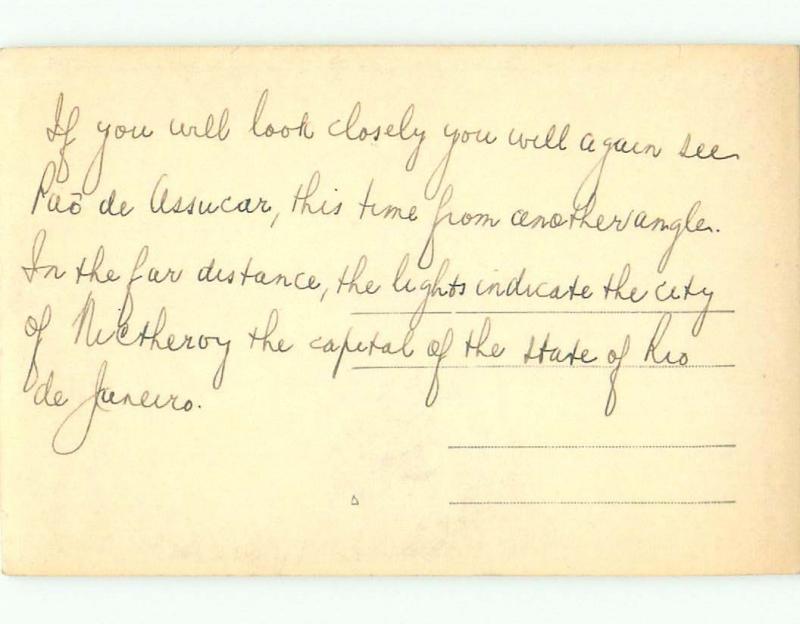 If you will look closely you will again see
Paō de Assucar, this time from another angle.
In the far distance, the lights indicate the city
of Nictheroy the capital of the state of Rio
de Janeiro.